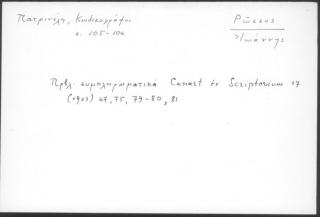 Πατρινέλη, Κωδικογράφοι
σ. 105-106
Ρῶσσος
Ἰωάννης
Πρβλ. συμπληρωματικά Canart ἐν Scriptorium 17
(1963) 67, 75, 79-80, 81